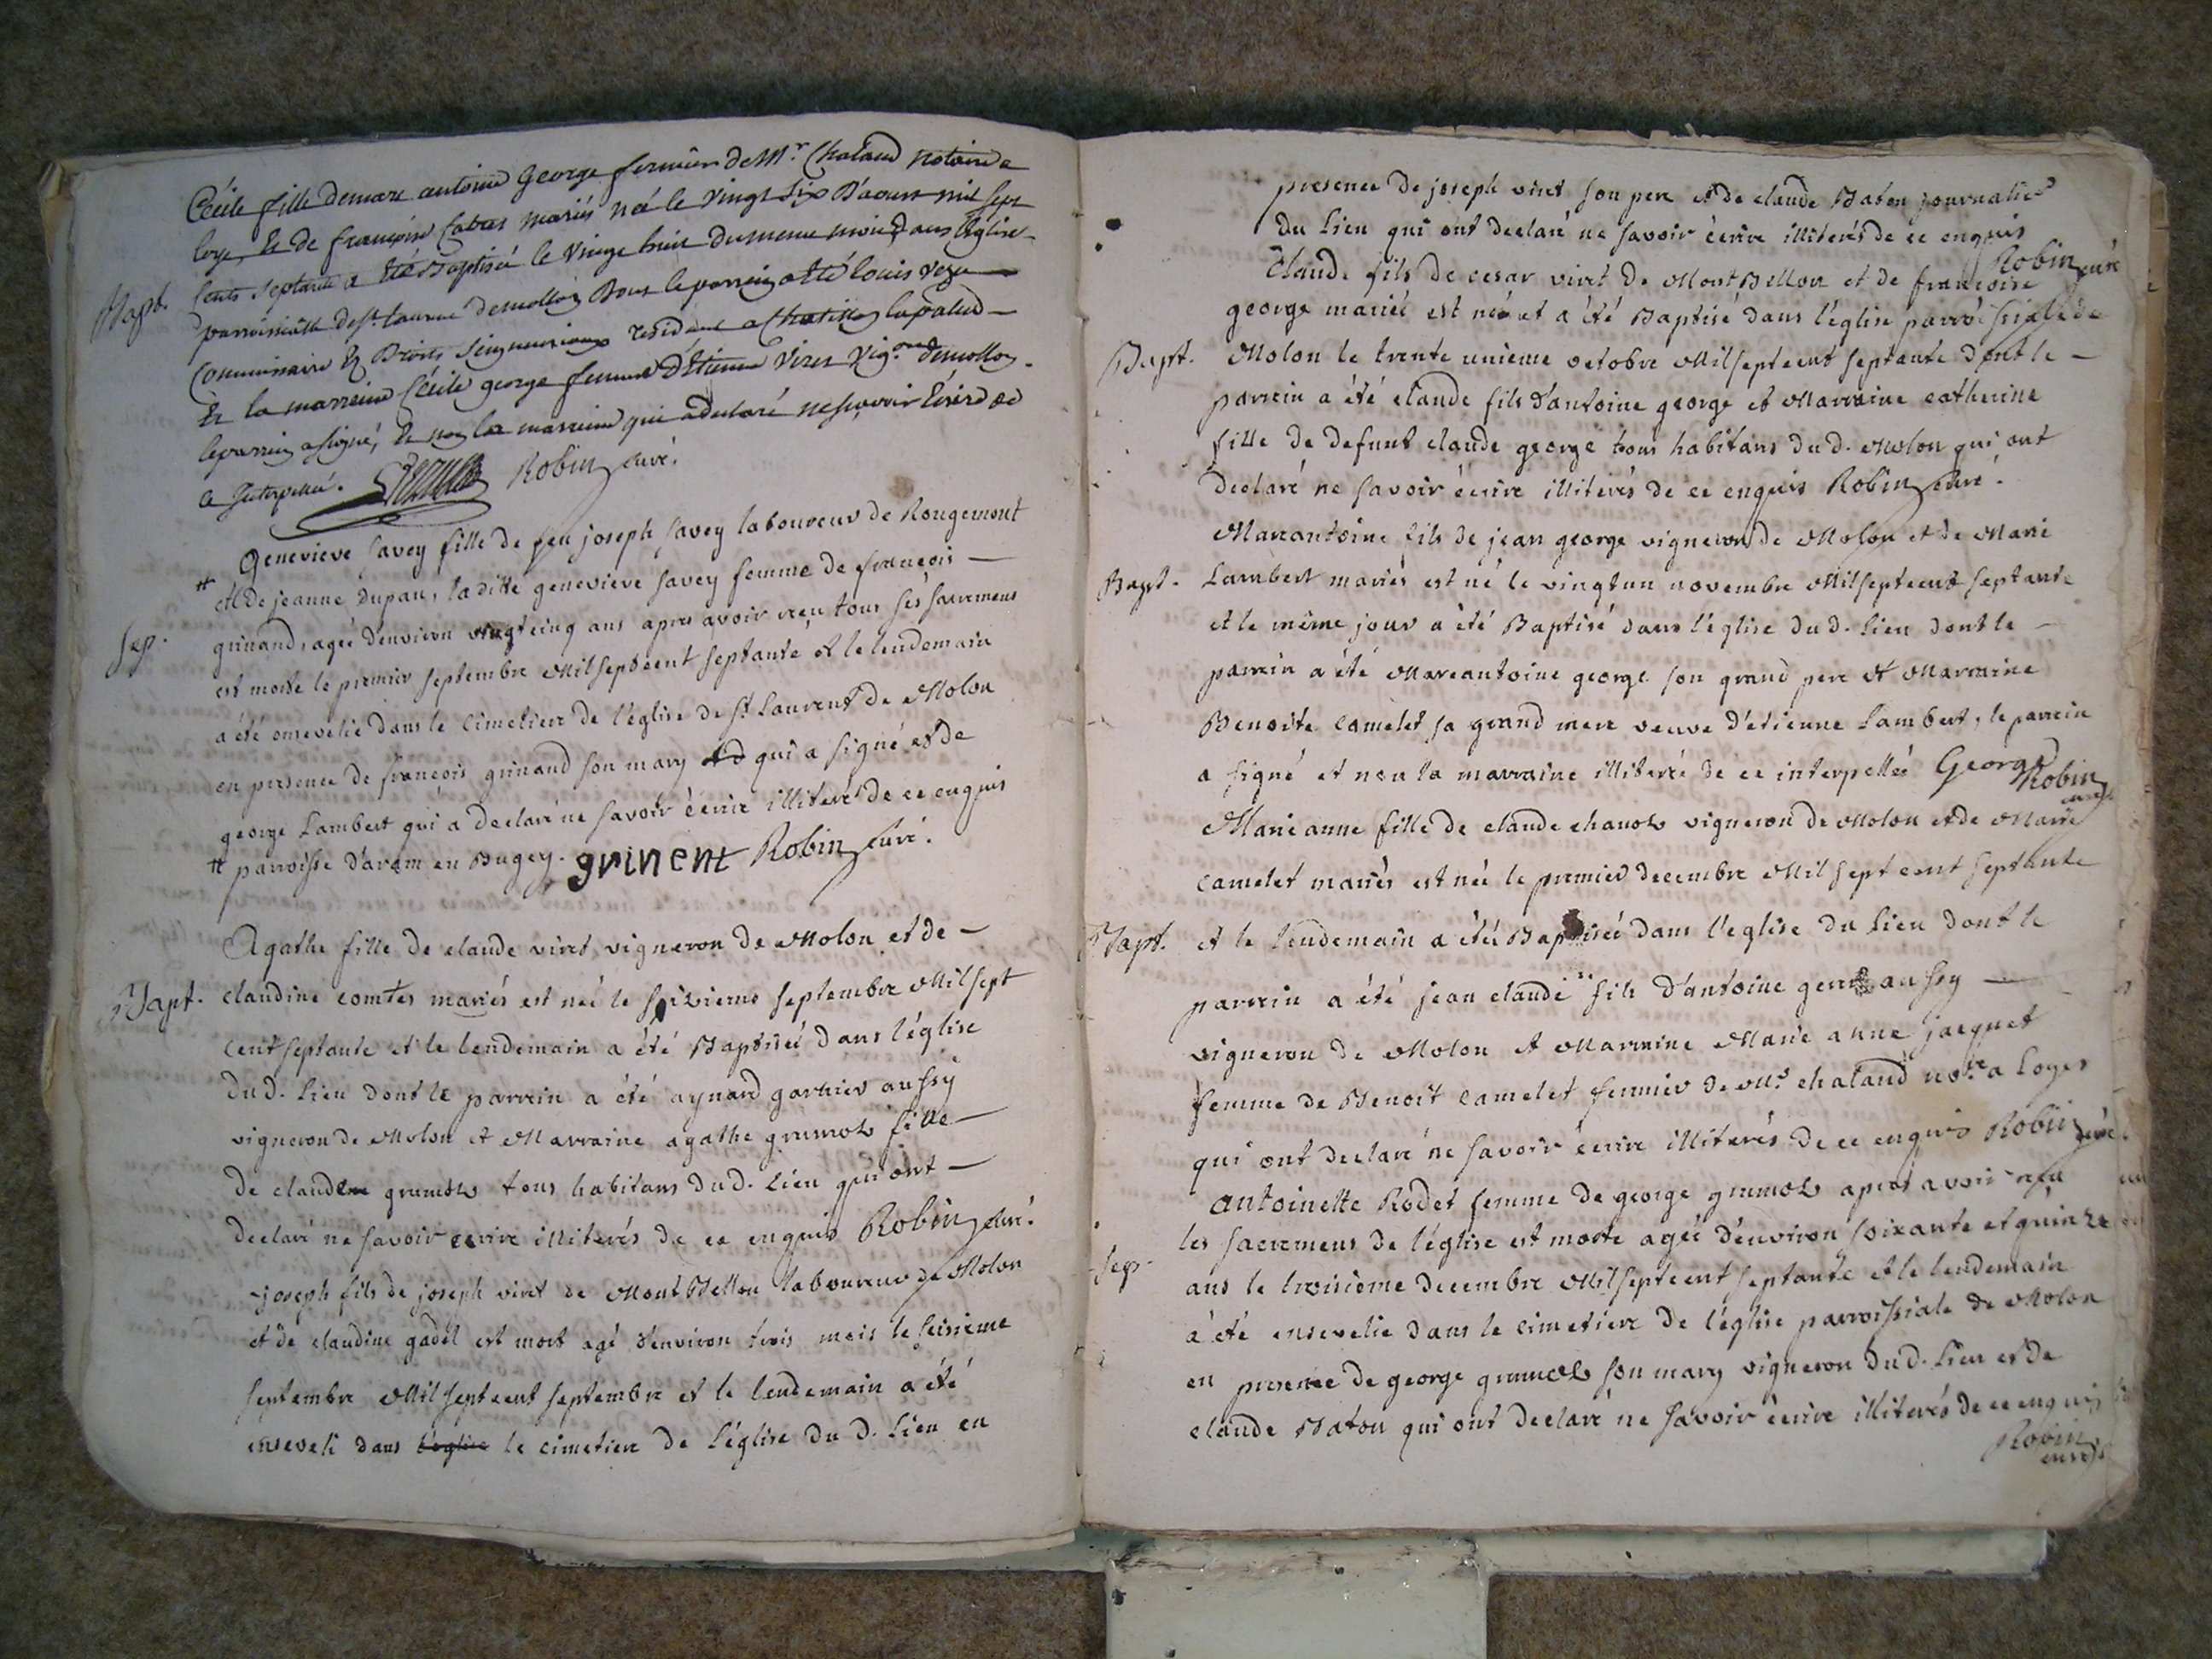 Cécile fille de marc antoine George fermier de Mr. Chaland notaire a
loye, & de françoise Cabas mariés née le vingt six D'aoust mil sept
Bapt. cents septante a été Baptisée le vingt huit du meme mois dans l'église
parroissialle de st. laurent de mollon Dont le parrein a été louis
Commissaire Es Droits Seigneuriaux resident a Chatillon lapalud
& la marreine Cécile george femme d'Etienne Viret vig.on de mollon.
le parrein a signé, & non la marreine qui a declaré ne sçavoir Ecrire de
ce Interpellée. Robin curé.
Genevieve savey fille de feu joseph savey laboureur de Rougemont
# et de jeanne Dupan, la ditte genevieve savey femme de françois
Sep. grinand, agée d'environ vingt cinq ans apres avoir reçu tous ses sacremens
est morte le premier septembre Mil sept cent septante et le lendemain
a été ensevelie dans le cimetiere de l'église de st Laurent de Molon
en presence de françois grinand son mary qui a signé et de
george Lambert qui a declaré ne savoir écrire illiteré de ce enquis
# parroisse d'aram en Bugey. grinent Robin curé.
Agathe fille de claude viret vigneron de Molon et de
Bapt. claudine comtes mariés est née le septembre Mil sept
cent septante et le lendemain a été Baptisée dans l'église
du d. Lieu dont le parrein a été aynard garnier aussy
vigneron de Molon et Marraine agathe grumol fille
de claude grumol tous habitans du d. Lieu qui ont
declaré ne savoir ecrire illiterés de ce enquis Robin curé.
joseph fils de joseph viret de Mont Bellon laboureur de Molon
et de claudine gadel est mort agé d'environ trois mois le seizieme
septembre Mil sept cent septembre et le lendemain a été
enseveli dans l'eglise le cimetiere de l'église du d. Lieu en
presence de joseph viret son pere et de claude Baton journalier
du Lieu qui ont declaré ne savoir écrire illiterés de ce enquis
Robin curé
Claude fils de cesar viret de Mont Bellon et de françoise
george mariés est né et a été Baptisé dans l'église parroissiale de
Bapt. Molon le trente unieme octobre Mil sept cent septante dont le
parrein a été claude fils d'antoine george et Marraine catherine
fille de defunt claude george tous habitans du d. Molon qui ont
declaré ne savoir écrire illiterés de ce enquis Robin curé.
Marcantoine fils de jean george vigneron de Molon et de Marie
Bapt. Lambert mariés est né le vingt un novembre Mil sept cent septante
et le même jour a été Baptisé dans l'église du d. Lieu dont le
parrein a été Marcantoine george son grand pere et Marraine
Benoite camelet sa grand mere veuve d'etienne Lambert, le parrein
a signé et non la marraine illiterée de ce interpellée George
Robin curé
Marie anne fille de claude chanol vigneron de Molon et de Marie
camelet mariés est née le premier decembre Mil sept cent septante
Bapt. et le lendemain a été Baptisée dans l'eglise du Lieu dont le
parrein a été jean claude fils d'antoine aussy
vigneron de Molon et Marraine Marie anne jacquet
femme de Benoit camelet fermier de Mr. chaland not.re a Loyes
qui ont declaré ne savoir écrire illiterés de ce enquis Robin curé
antoinette Rodet femme de george grumol apres avoir reçu
Sep. les sacremens de l'église est morte agée d'environ soixante et quinze
ans le troisieme decembre Mil sept cent septante et le lendemain
a été ensevelie dans le cimetiere de l'église parroissiale de Molon
en presence de george grumol son mary vigneron du d. Lieu et de
claude Baton qui ont declaré ne savoir écrire illiterés de ce enquis
Robin
curé